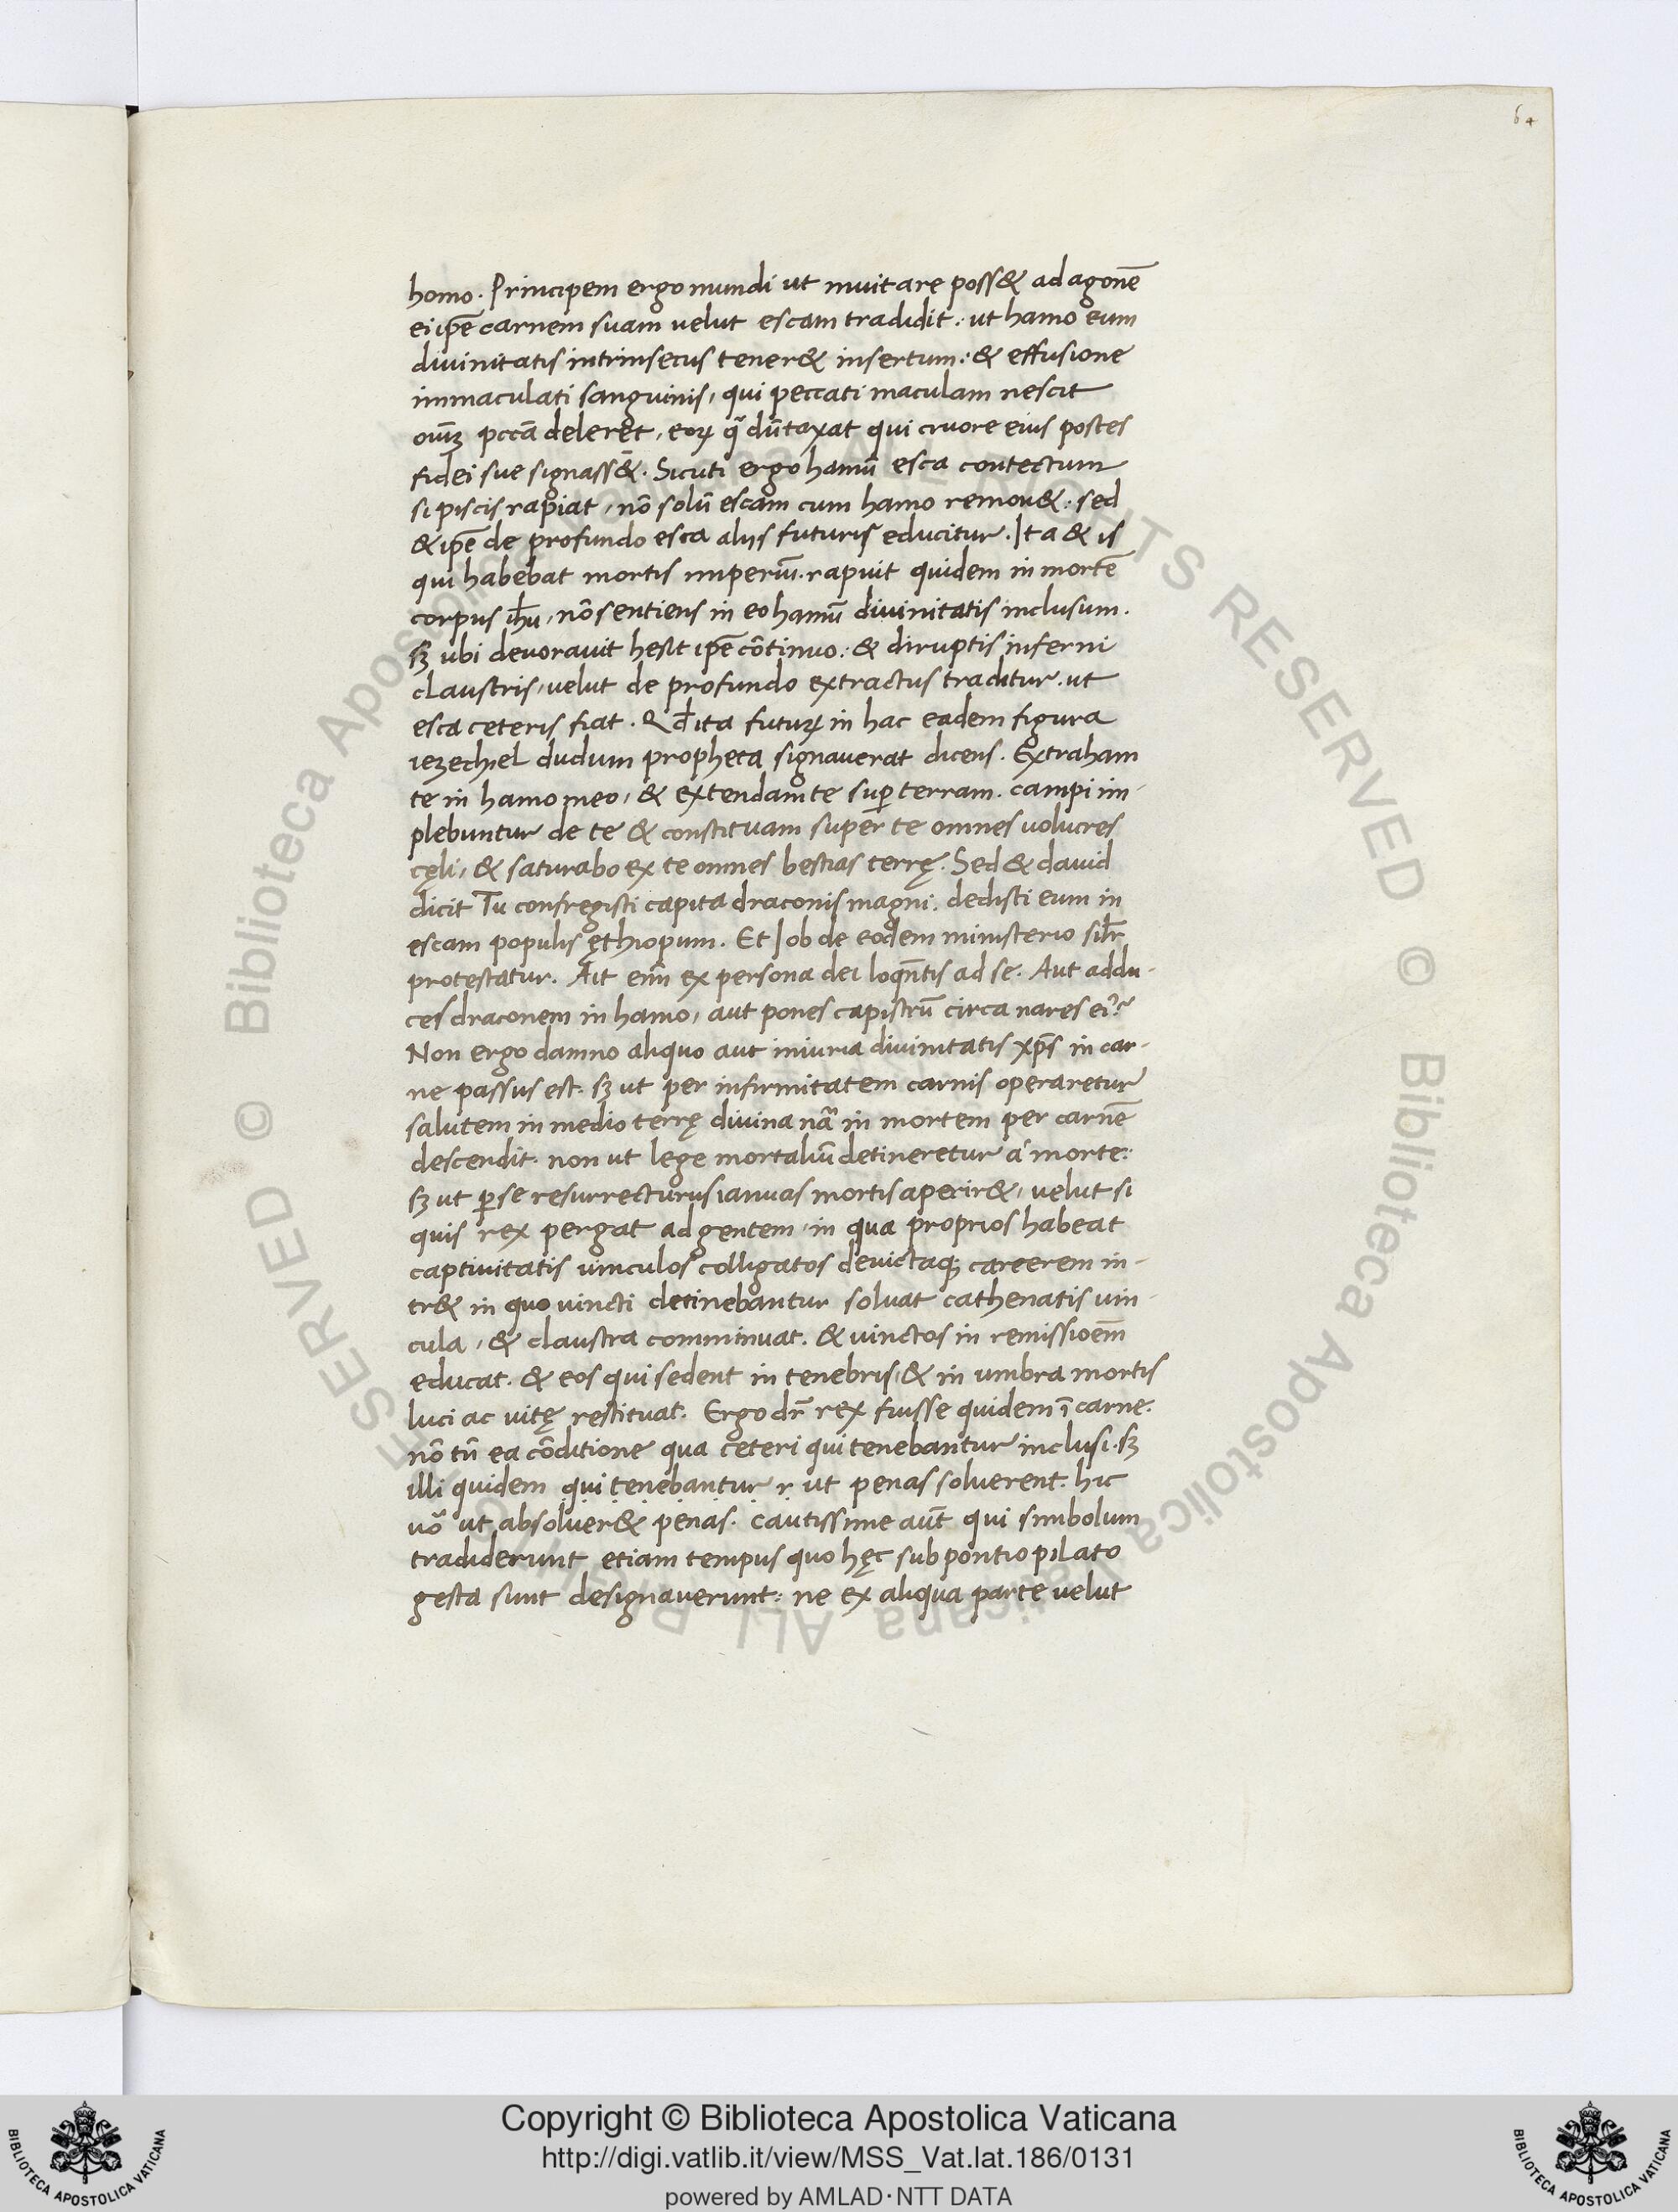 64
homo. Principem ergo mundi ut inuitare poss& ad agonē
ei ip̄e carnem suam uelut escam tradidit: ut hamo eum
diuinitatis intrinsecus tener& insertum: & effusione
immaculati sanguinis, qui peccati maculam nescit
oīuꝫ pccā deleret, eoꝝ q̄ dūtaxat qui cruore eius postes
fidei sue signass&̄. Sicuti ergo hamū esca contectum
si piscis rapiat, nō solū escam cum hamo remou&: sed
& ip̄e de profundo esca aliis futuris educitur. Ita & is
qui habebat mortis imperiū. rapuit quidem in mortē
corpus ihū, nō sentiens in eo hamū diuinitatis inclusum.
sꝫ ubi deuorauit hesit ip̄e cōtinuo: & diruptis inferni
claustris, uelut de profundo extractus traditur. ut
esca ceteris fiat. Qd̄ ita futuꝝ in hac eadem figura
iezechiel dudum propheta signauerat dicens. Extraham
te in hamo meo, & extendam te suꝑ terram. campi im-
plebuntur de te & constituam super te omnes uolucres
cęli, & saturabo ex te omnes bestias terrę. Sed & dauid
dicit Tu confregisti capita draconis magni. dedisti eum in
escam populis ęthiopum. Et Iob de eodem ministerio silr̄
protestatur. Ait eni̅ ex persona dei loqn̄tis ad se. Aut addu-
ces draconem in hamo, aut pones capistrū circa nares ei᾿?
Non ergo damno aliquo aut iniuria diuinitatis xp̄s in car-
ne passus est. sꝫ ut per infirmitatem carnis operaretur
salutem in medio terrę diuina nā in mortem per carnē
descendit. non ut lege mortaliū detineretur a morte:
sꝫ ut ꝑ se resurrecturus ianuas mortis aperir&, uelut si
quis rex pergat ad gentem, in qua proprios habeat
captiuitatis uinculos colligatos deuictaqꝫ carcerem in-
tr& in quo uincti detinebantur soluat cathenatis uin-
cula, & claustra comminuat. & uinctos in remissioēm
educat. & eos qui sedent in tenebris, & in umbra mortis
luci ac uitę restituat. Ergo dr̄ rex fuisse quidem ī carne.
nō tn̄ ea cōditione qua ceteri qui tenebantur inclusi. sꝫ
illi quidem qui tenebantur r ut penas soluerent. hic
uō ut absoluer& penas. cautissime aūt qui simbolum
tradiderunt etiam tempus quo hęc sub pontio pilato
gesta sunt designauerunt: ne ex aliqua parte uelut
© Biblioteca Apostolica Vaticana ALL RIGHTS RESERVED
© Biblioteca Apostolica Vaticana ALL RIGHTS RESERVED
Copyright © Biblioteca Apostolica Vaticana
http://digi.vatlib.it/view/MSS_Vat.lat.186/0131
powered by AMLAD·NTT DATA
BIBLIOTECA APOSTOLICA VATICANA
BIBLIOTECA APOSTOLICA VATICANA